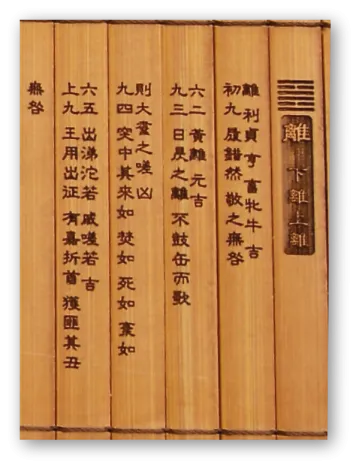 離 下離上離
離 利貞 亨 畜牝牛 吉
初九 履錯然 敬之無咎
六二 黃離 元吉
九三 日昃之離 不鼓缶而歌
則大耋之嗟 凶
九四 突如其來如 焚如 死如 棄如
六五 出涕沱若 戚嗟若 吉
上九 王用出征 有嘉折首 獲匪其丑
無咎